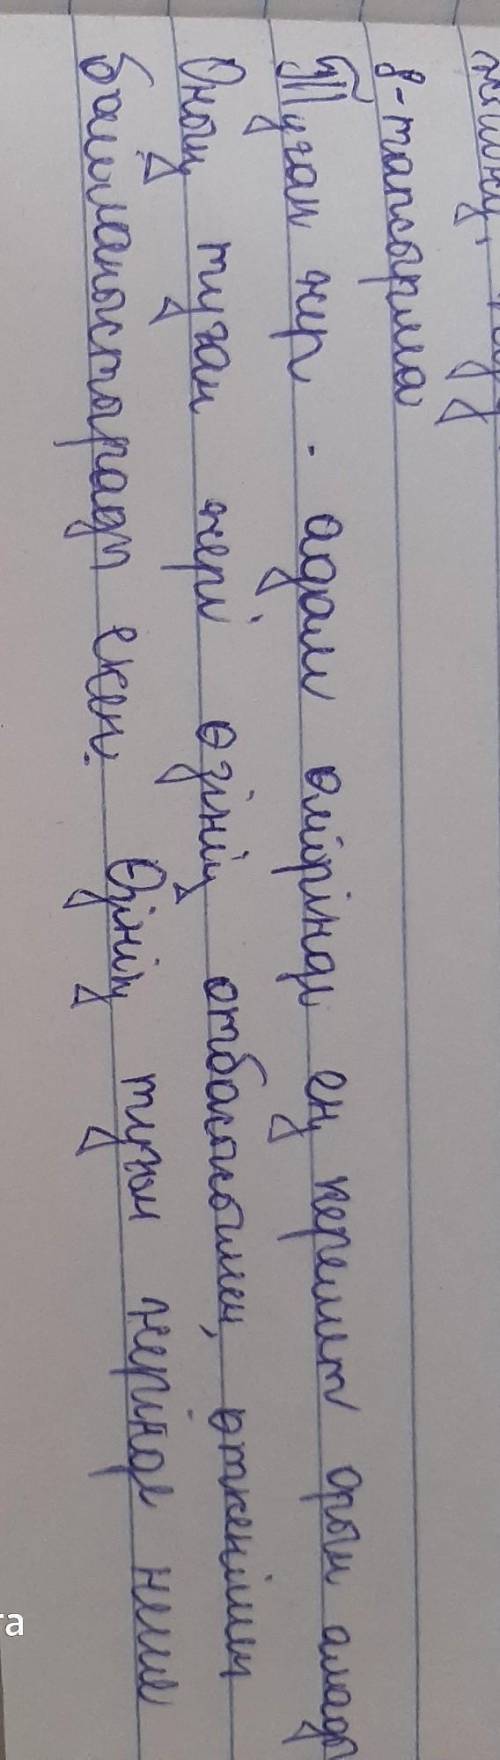 8-тапсырма
Туған жер - адам өмірінде ең керемет орын алады
Оның туған жері өзінің отбасысымен, өткенімен
байланыстырады екен. Өзінің туған жерінде неше